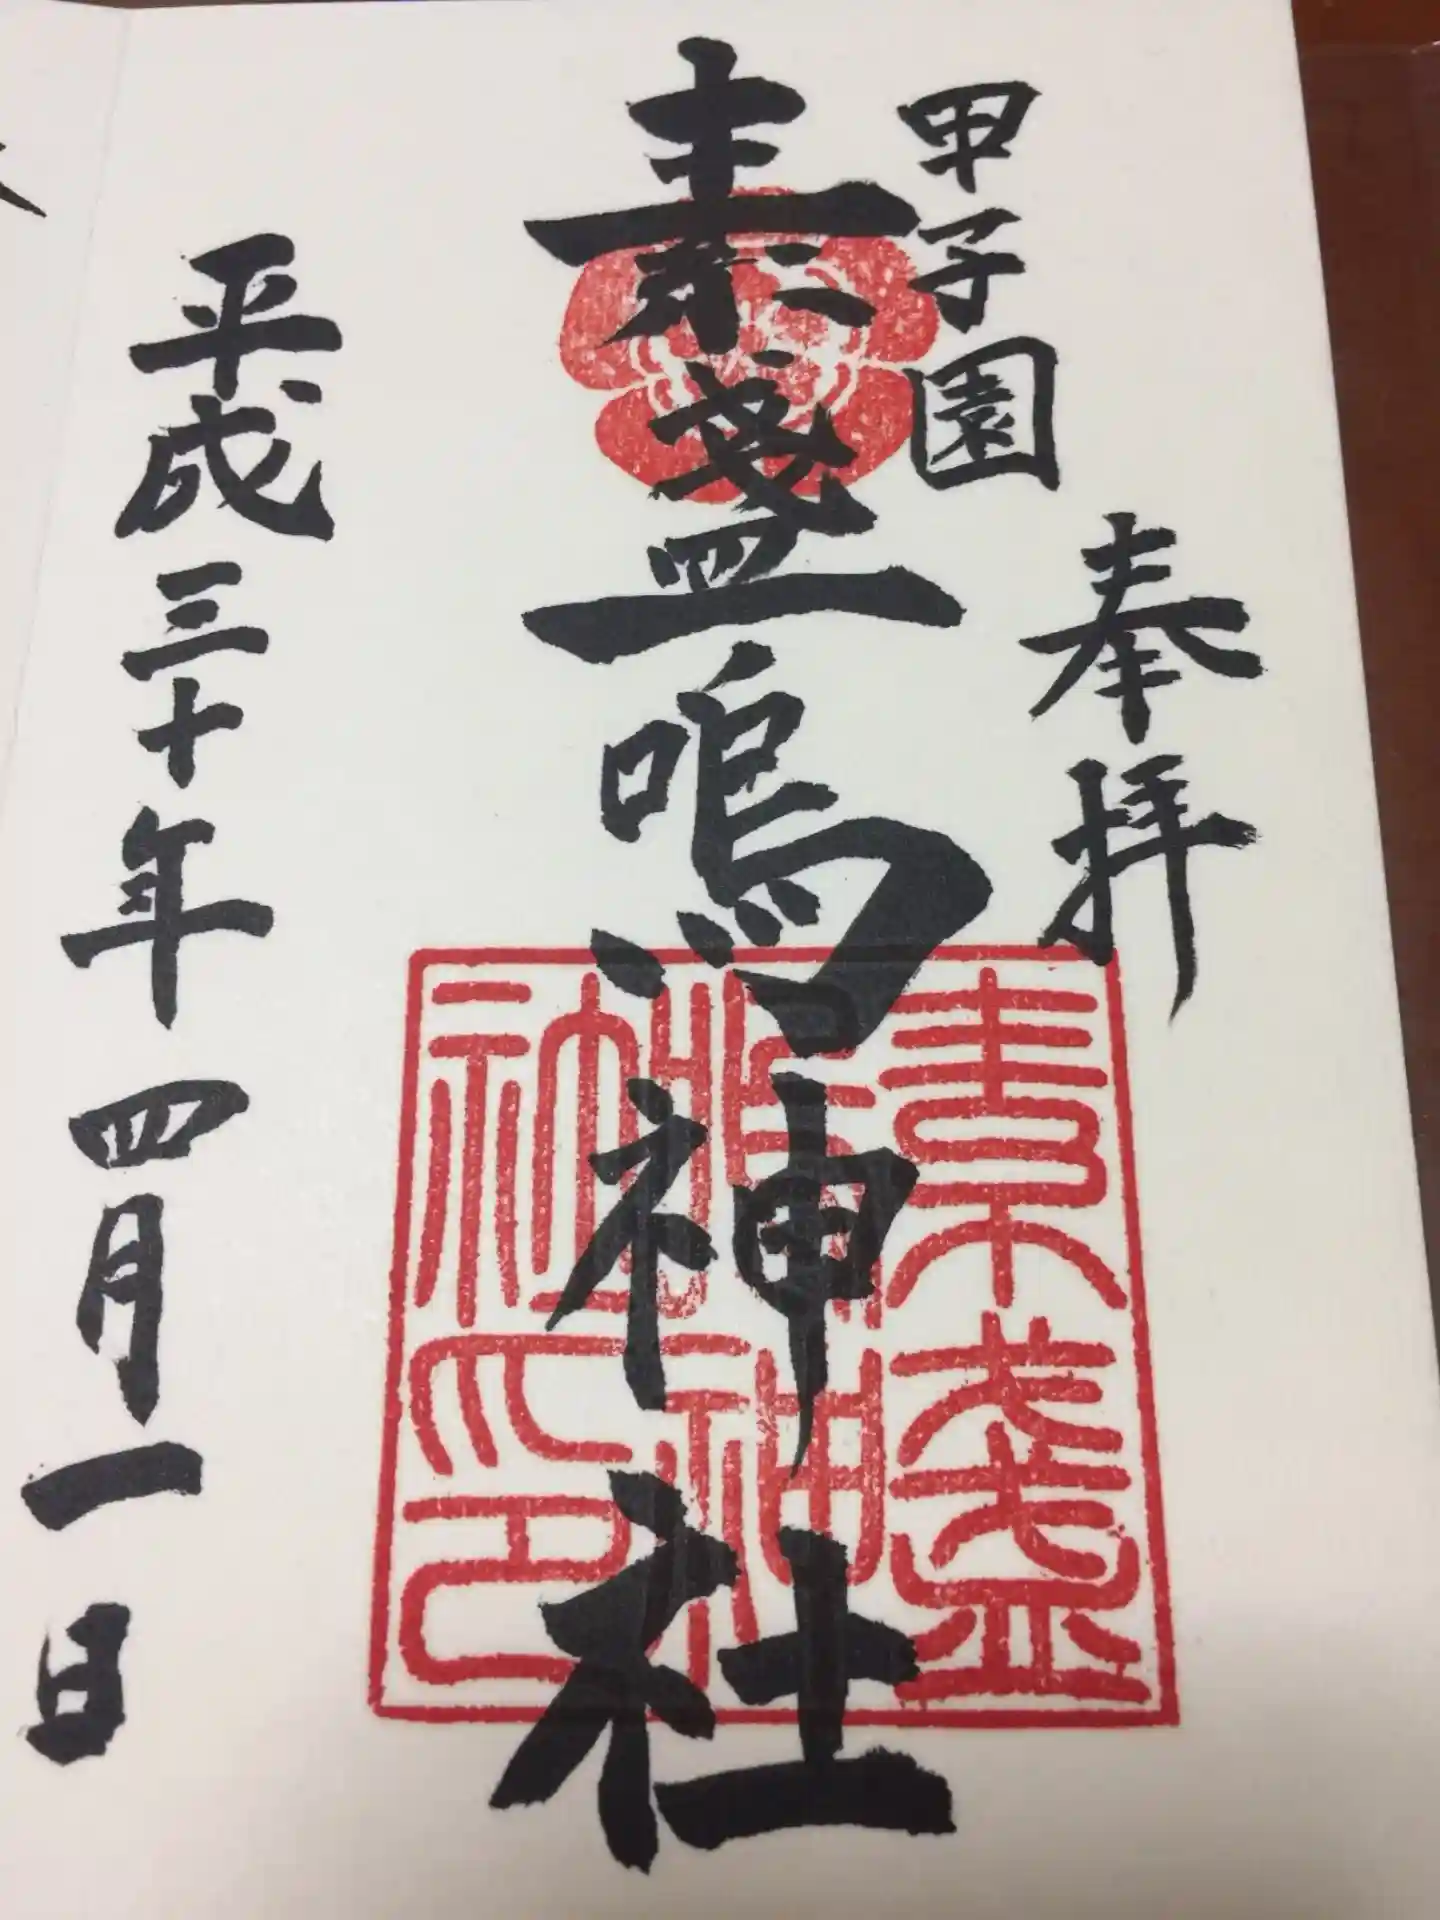 奉拝
甲子園
素盞嗚神社
素盞
嗚神
社印
平成三十年四月一日